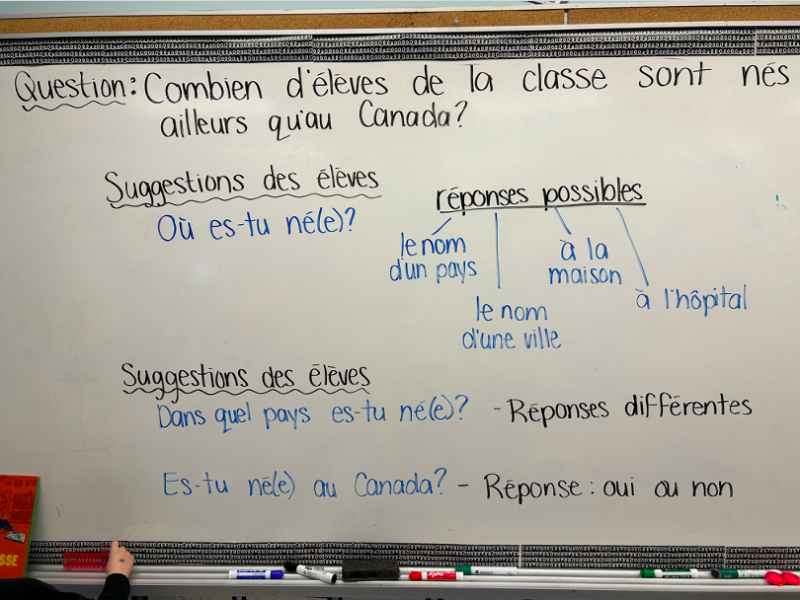 Question: Combien d'élèves de la classe sont nés
ailleurs qu'au Canada?
Suggestions des élèves
Où es-tu né(e)?
réponses possibles
le nom
d'un pays
le nom
d'une ville
à la
maison
à l'hôpital
Suggestions des élèves
Dans quel pays es-tu né(e)? - Réponses différentes
Es-tu né(e) au Canada? - Réponse: oui ou non
SSE